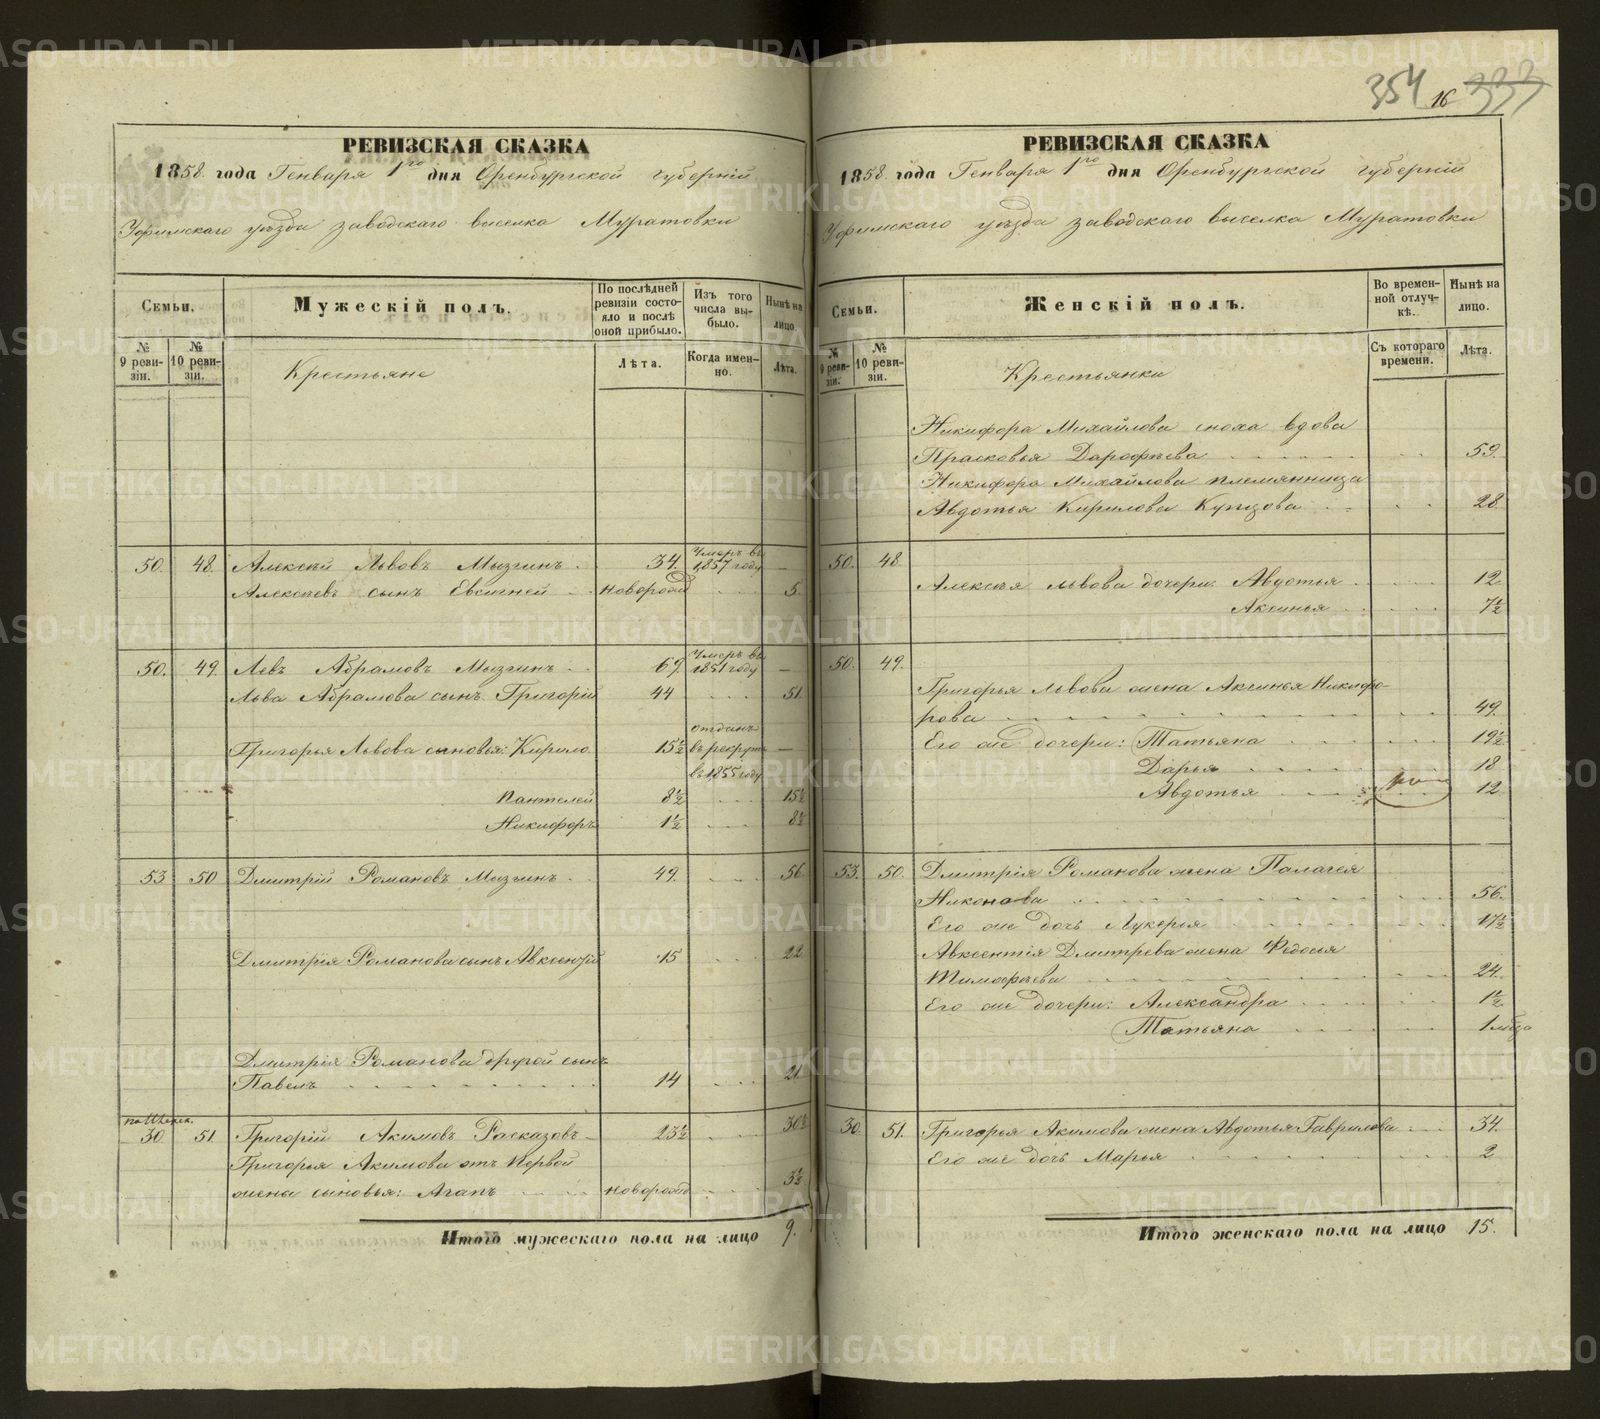 354 16 333
РЕВИЗСКАЯ СКАЗКА
1858 года Генваря 1го дня Оренбургской губерніи
Уфимскаго уѣзда заводскаго выселка Муратовки
Семьи.
Мужескій полъ.
По послѣдней ревизіи состояло и послѣ оной прибыло.
Изъ того числа выбыло.
Нынѣ на лицо.
№ 9 ревизіи.
№ 10 ревизіи.
Крестьяне
Лѣта.
Когда именно.
Лѣта.
50. 48. Алексѣй Львовъ Мызгинъ 34. Умеръ въ 1857 году —
Алексѣевъ сынъ Евсигней новорожд 5.
50. 49. Левъ Абрамовъ Мызгинъ 69. Умеръ въ 1851 году —
Льва Абрамова сынъ Григорій 44 51.
Григорья Львова сыновья: Кирило 15½ отданъ въ рекруты въ 1855 году —
Пантелей 8½ 15½
Никифоръ 1½ 8½
53 50 Дмитрій Романовъ Мызгинъ 49. 56
Дмитрія Романова сынъ Авксентій 15 22
Дмитрія Романова другой сынъ
Павелъ 14 21
30 51 Григорій Акимовъ Расказовъ 23½ 30½
Григорья Акимова отъ первой
жены сыновья: Агапъ новорожд 5½
Итого мужескаго пола на лицо 9.
РЕВИЗСКАЯ СКАЗКА
1858 года Генваря 1го дня Оренбургской губерніи
Уфимскаго уѣзда заводскаго выселка Муратовки
Семьи.
Женскій полъ.
Во временной отлучкѣ.
Нынѣ на лицо.
№ 9 ревизіи.
№ 10 ревизіи.
Крестьянки
Съ котораго времени.
Лѣта.
Никифора Михайлова сноха вдова
Прасковья Дарофѣева 59.
Никифора Михайлова племянница
Авдотья Кирилова Купцова 28.
50. 48
Алексѣя Львова дочери: Авдотья 12
Аксинья 7½
50. 49.
Григорья Львова жена Аксинья Никифо-
рова 49.
Его же дочери: Татьяна 19½
Дарья 18
Авдотья 12.
53. 50. Дмитрія Романова жена Палагея
Никонова 56.
Его же дочь Лукерья 17½
Авксентія Дмитрева жена Федосья
Тимофѣева 24.
Его же дочери: Александра 1½
Татьяна 1 мѣсц
30. 51. Григорья Акимова жена Авдотья Гаврилова 34.
Его же дочь Марья 2
Итого женскаго пола на лицо 15.
METRIKI.GASO-URAL.RU